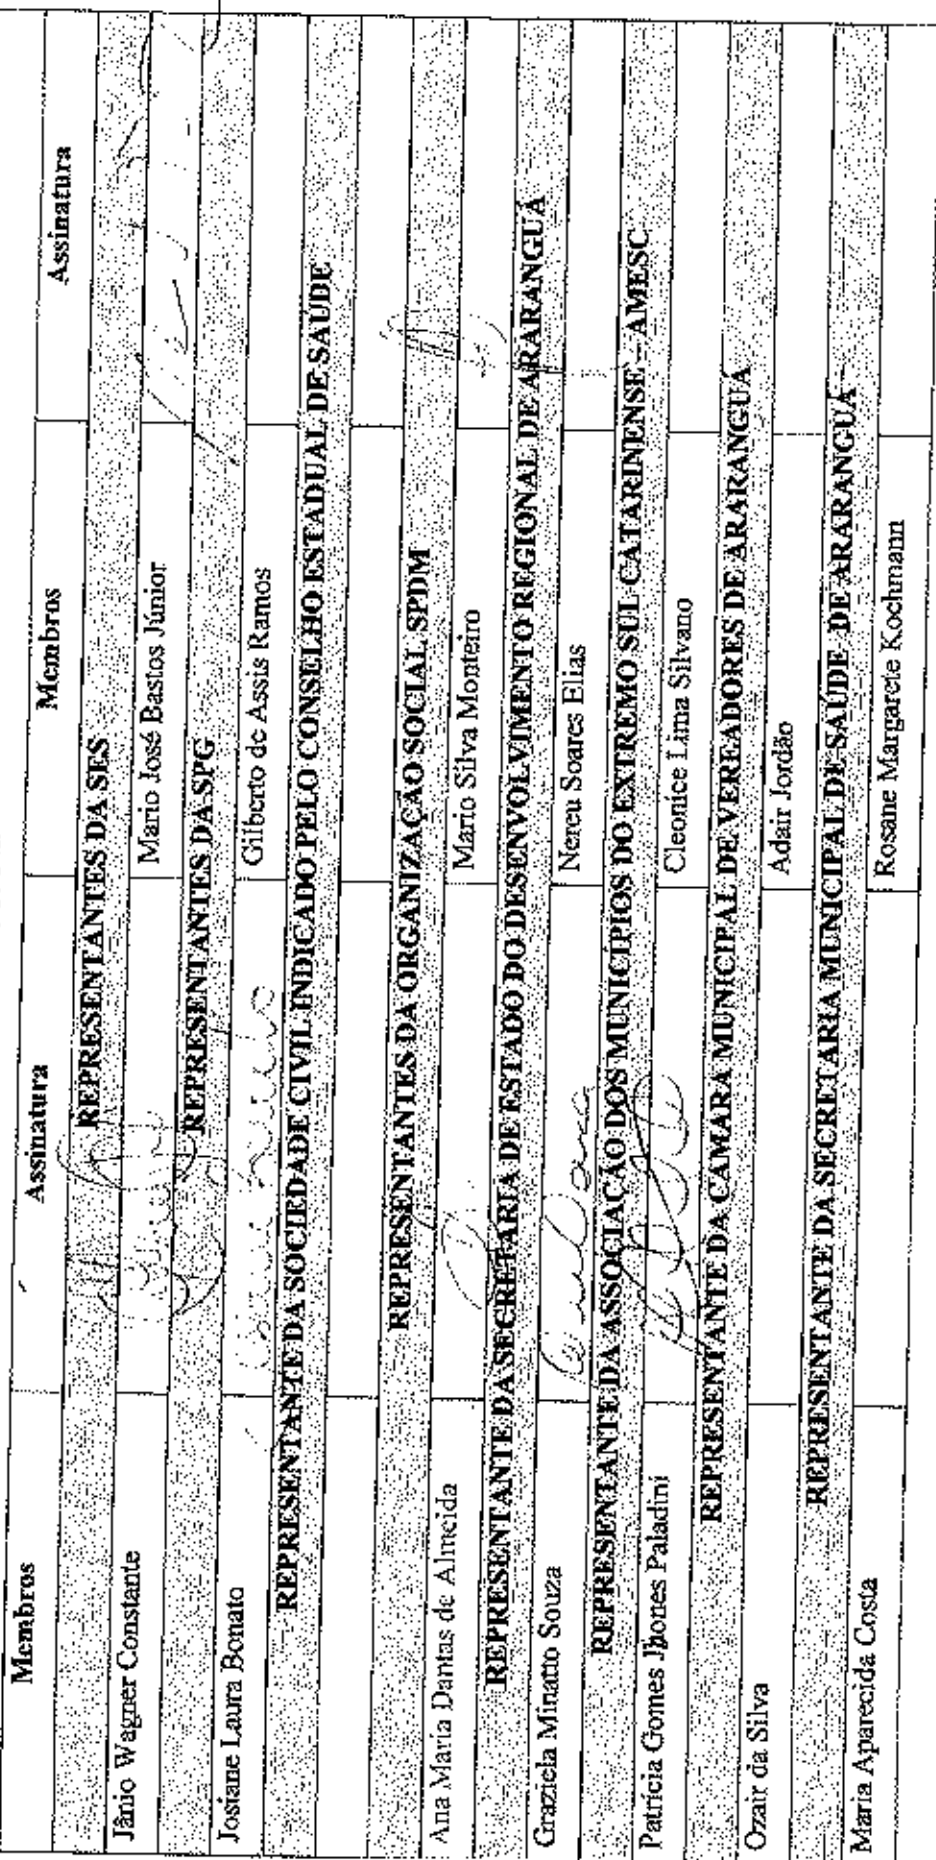 Membros Assinatura Membros Assinatura
REPRESENTANTES DA SES
Jânio Wagner Constante Mario José Bastos Júnior
REPRESENTANTES DA SPG
Josiane Laura Bonato Gilberto de Assis Ramos
REPRESENTANTE DA SOCIEDADE CIVIL INDICADO PELO CONSELHO ESTADUAL DE SAÚDE
REPRESENTANTES DA ORGANIZAÇÃO SOCIAL SPDM
Ana Maria Dantas de Almeida Mario Silva Monteiro
REPRESENTANTE DA SECRETARIA DE ESTADO DO DESENVOLVIMENTO REGIONAL DE ARARANGUÁ
Graziela Minatto Souza Nereu Soares Elias
REPRESENTANTE DA ASSOCIAÇÃO DOS MUNICÍPIOS DO EXTREMO SUL CATARINENSE – AMESC
Patrícia Gomes Jhones Paladini Cleonice Lima Silvano
REPRESENTANTE DA CÂMARA MUNICIPAL DE VEREADORES DE ARARANGUÁ
Ozair da Silva Adair Jordão
REPRESENTANTE DA SECRETARIA MUNICIPAL DE SAÚDE DE ARARANGUÁ
Maria Aparecida Costa Rosane Margarete Kochmann